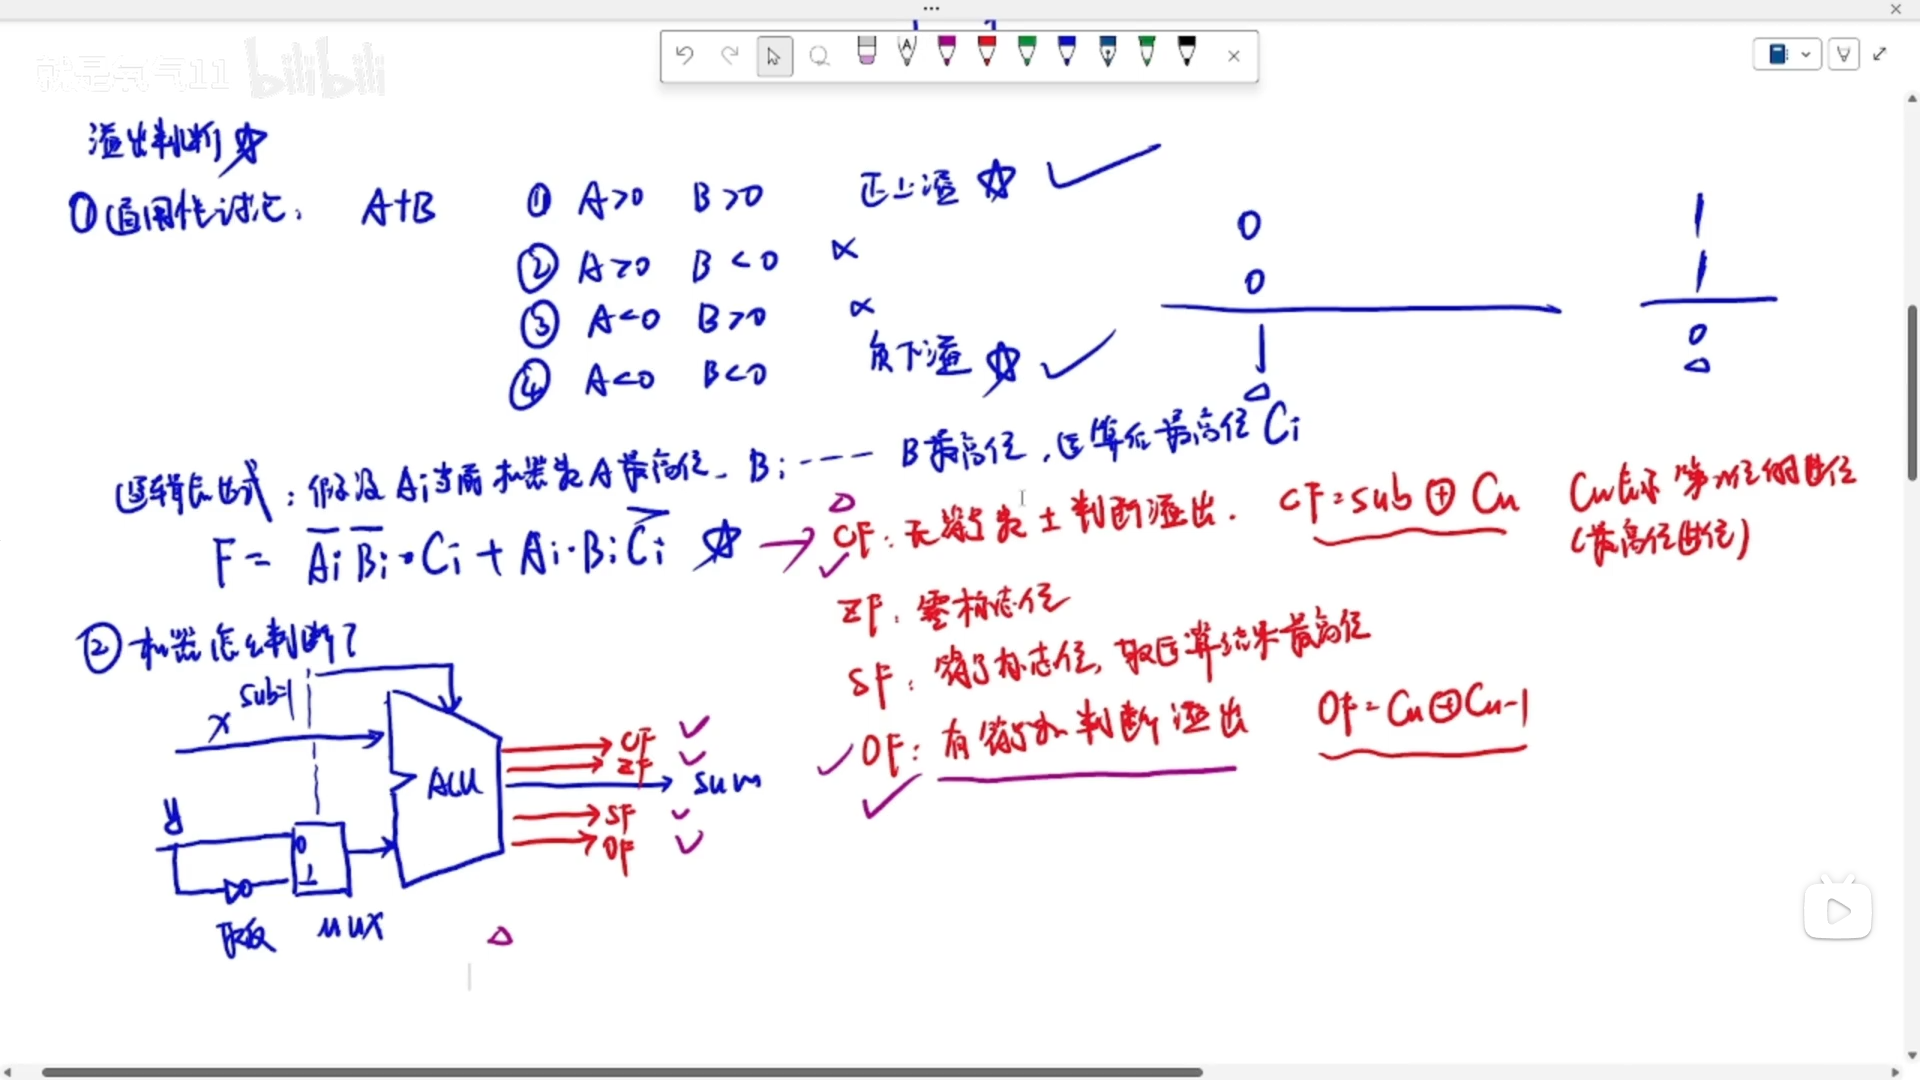 就是氧气11 bilibili
溢出判断☆
①适用性讨论: A+B ① A>0 B>0 正上溢 ☆ ✓
② A>0 B<0 ×
③ A<0 B>0 ×
④ A<0 B<0 负下溢 ☆ ✓
0
0
1
1
1
0
逻辑表达式:假设Ai当前机器数A最高位、Bi---- B最高位,运算后最高位Ci
F= A̅i B̅i·Ci + Ai·Bi C̅i ☆ →
CF:无符号数±判断溢出. CF=sub⊕Cn Cn表示第n位的进位
(最高位进位)
ZF:零标志位
SF:符号标志位,取运算结果最高位
OF:有符号加判断溢出 OF=Cn⊕Cn-1
②机器怎么判断?
sub=1
x
y
0
1
取反
MUX
ALU
CF
ZF
sum
SF
OF